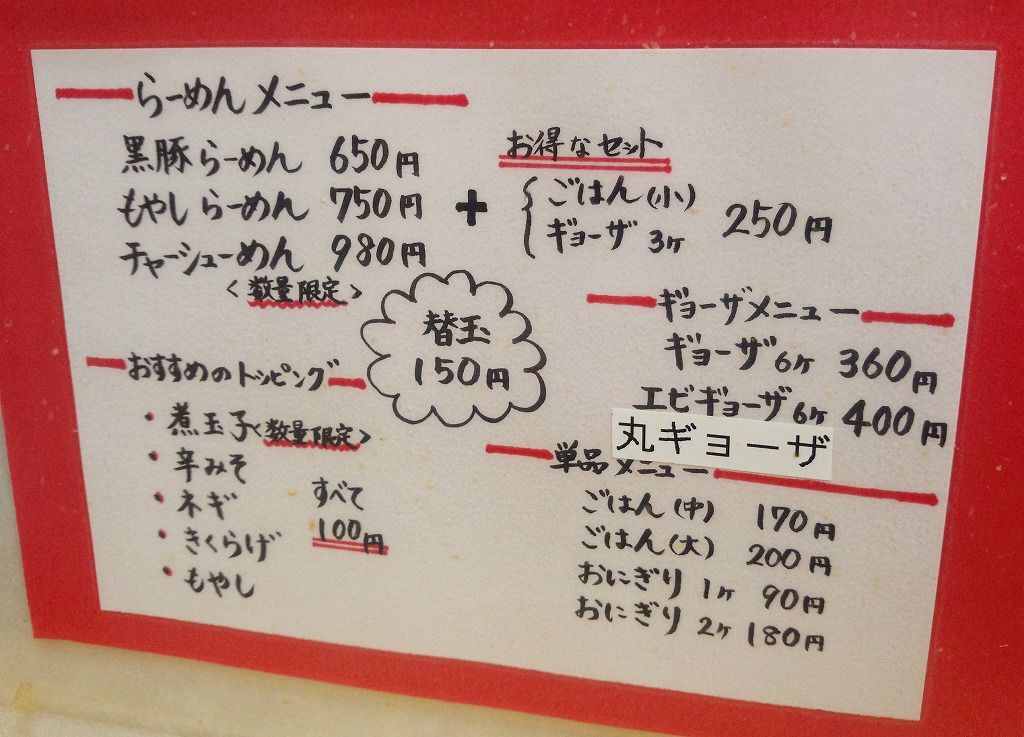 らーめんメニュー
黒豚らーめん 650円
もやしらーめん 750円
チャーシューめん 980円
<数量限定>
+
お得なセット
ごはん(小)
ギョーザ 3ヶ
250円
替玉
150円
おすすめのトッピング
・煮玉子<数量限定>
・辛みそ
・ネギ
・きくらげ
・もやし
すべて
100円
ギョーザメニュー
ギョーザ6ヶ 360円
エビギョーザ6ヶ 400円
丸ギョーザ
単品メニュー
ごはん(中) 170円
ごはん(大) 200円
おにぎり 1ヶ 90円
おにぎり 2ヶ 180円